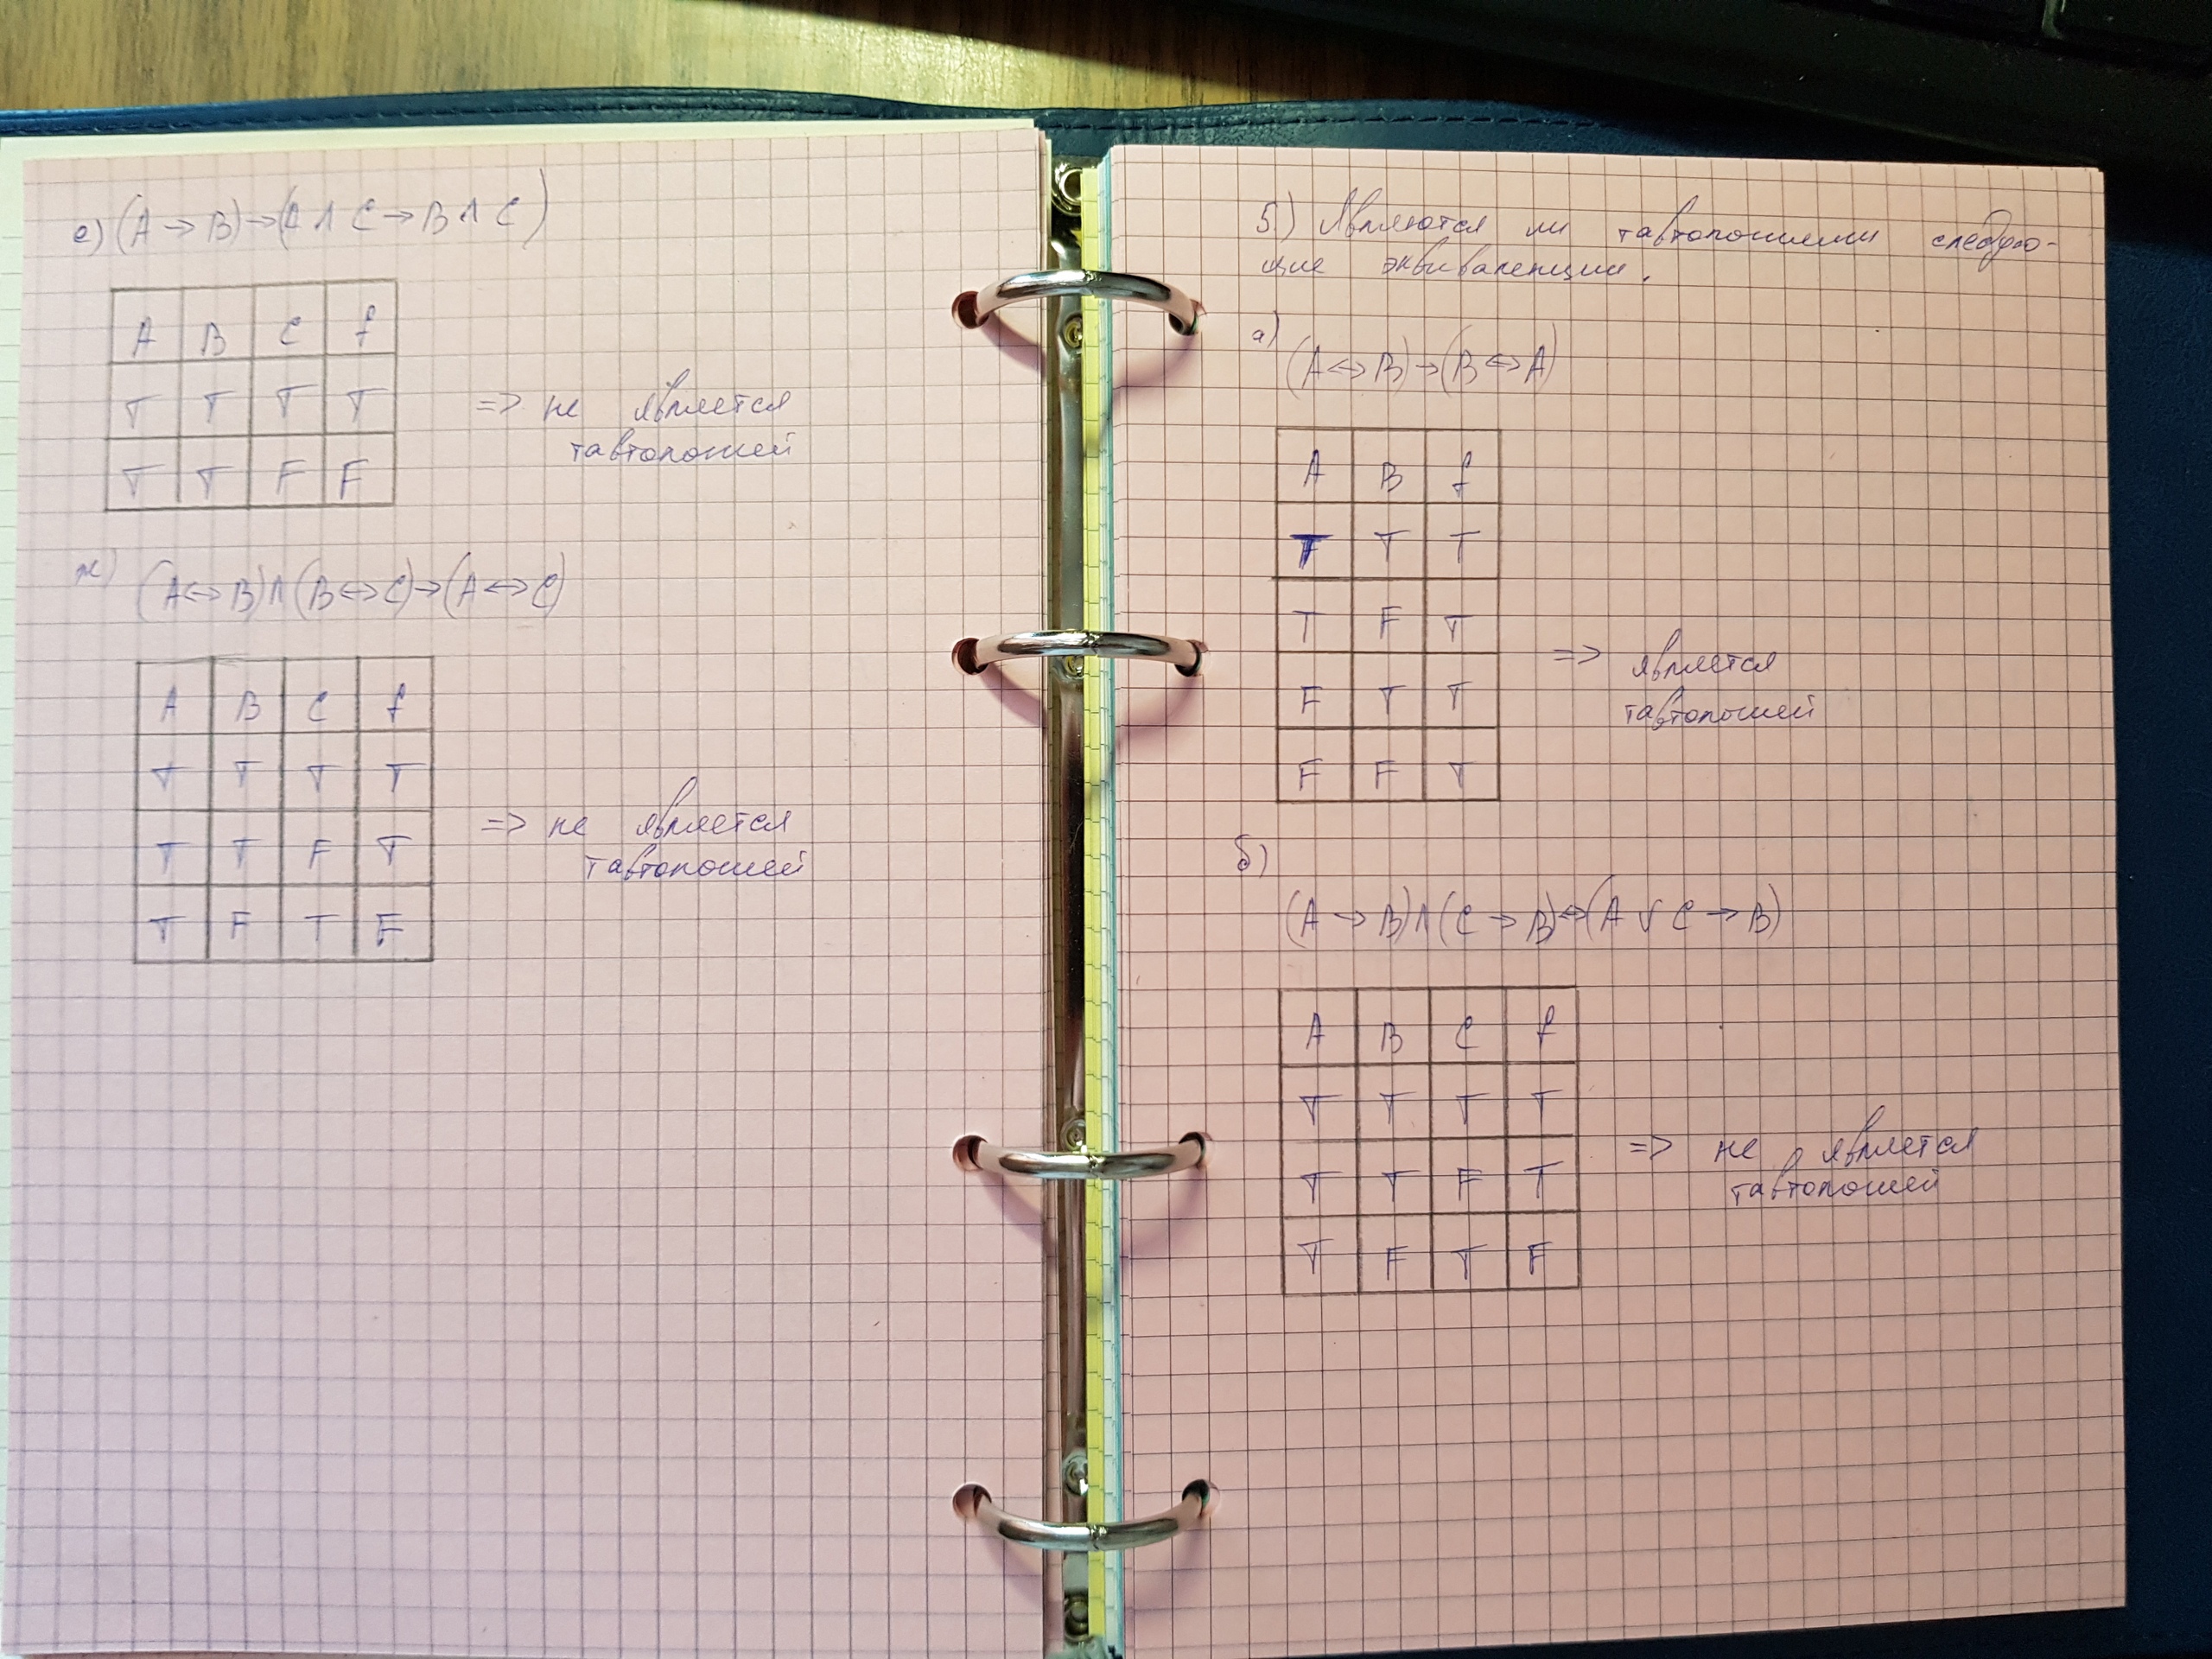 е) (A → B) → (A ∧ C → B ∧ C)
A B C f
T T T T
T T F F
=> не является
тавтологией
ж) (A ↔ B) ∧ (B ↔ C) → (A ↔ C)
A B C f
T T T T
T T F T
T F T F
=> не является
тавтологией
5.) Являются ли тавтологиями следую-
щие эквиваленции.
а) (A ↔ B) → (B ↔ A)
A B f
T T T
T F T
F T T
F F T
=> является
тавтологией
б)
(A → B) ∧ (C → B) ↔ (A ∨ C → B)
A B C f
T T T T
T T F T
T F T F
=> не является
тавтологией